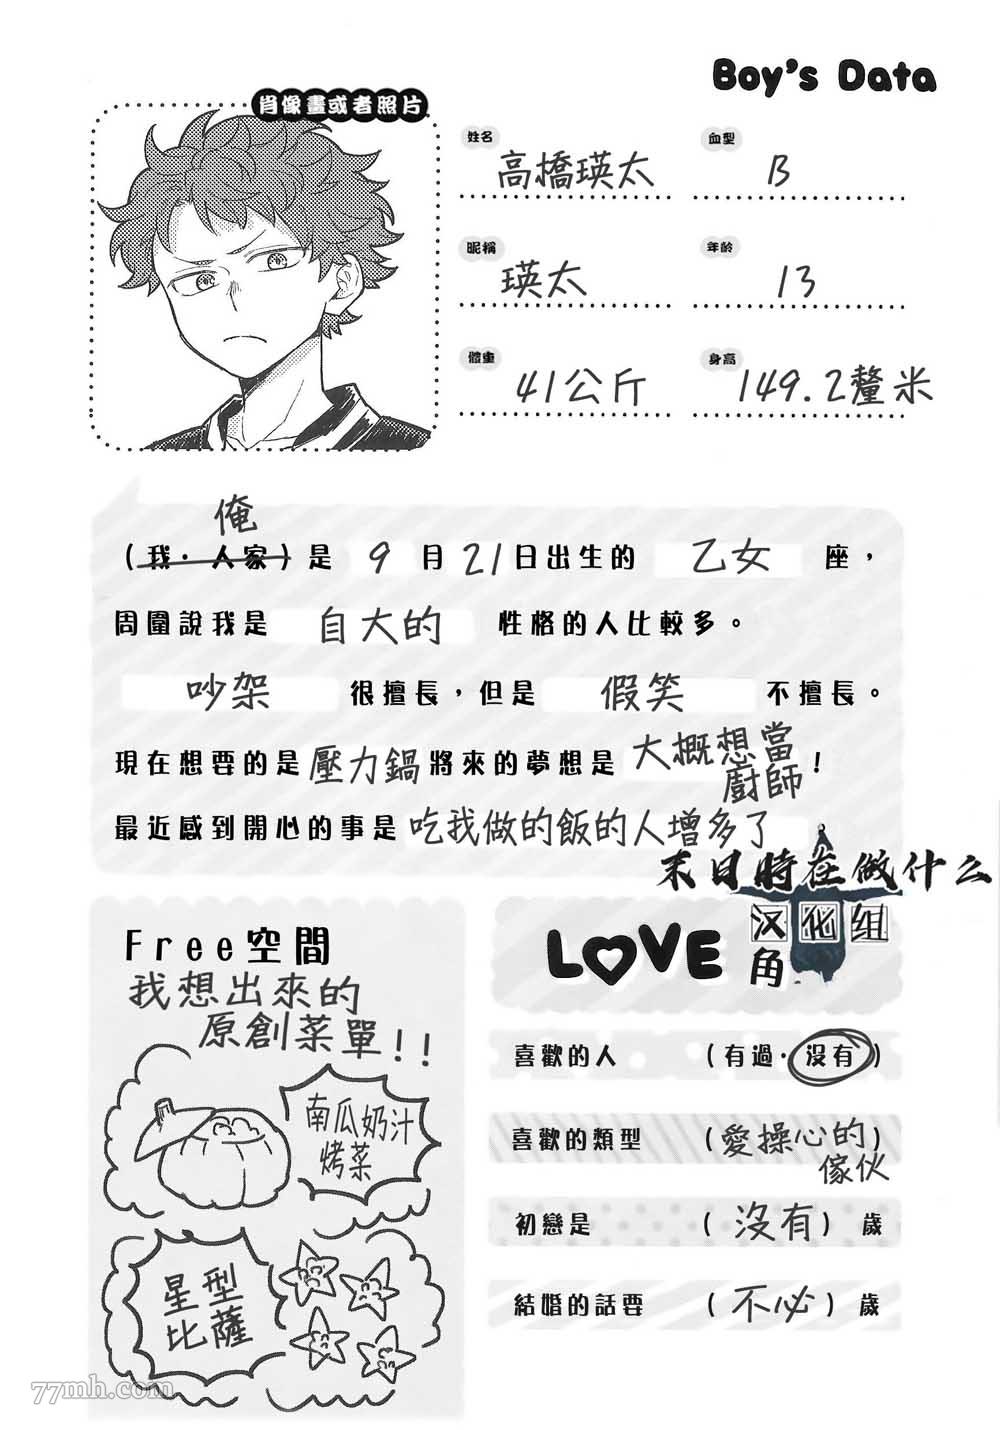 Boy's Data
肖像畫或者照片
姓名
高橋瑛太
血型
B
昵稱
瑛太
年齡
13
體重
41公斤
身高
149.2釐米
俺
(我・人家)是 9月21日出生的 乙女 座，
周圍說我是 自大的 性格的人比較多。
吵架 很擅長，但是 假笑 不擅長。
現在想要的是 壓力鍋 將來的夢想是 大概想當
廚師 !
最近感到開心的事是 吃我做的飯的人增多了
末日時在做什么
汉化组
Free空間
我想出來的
原創菜單!!
南瓜奶汁
烤菜
星型
比薩
LOVE
角
喜歡的人 (有過・沒有)
喜歡的類型 (愛操心的)
傢伙
初戀是 (沒有) 歲
結婚的話要 (不必) 歲
77mh.com